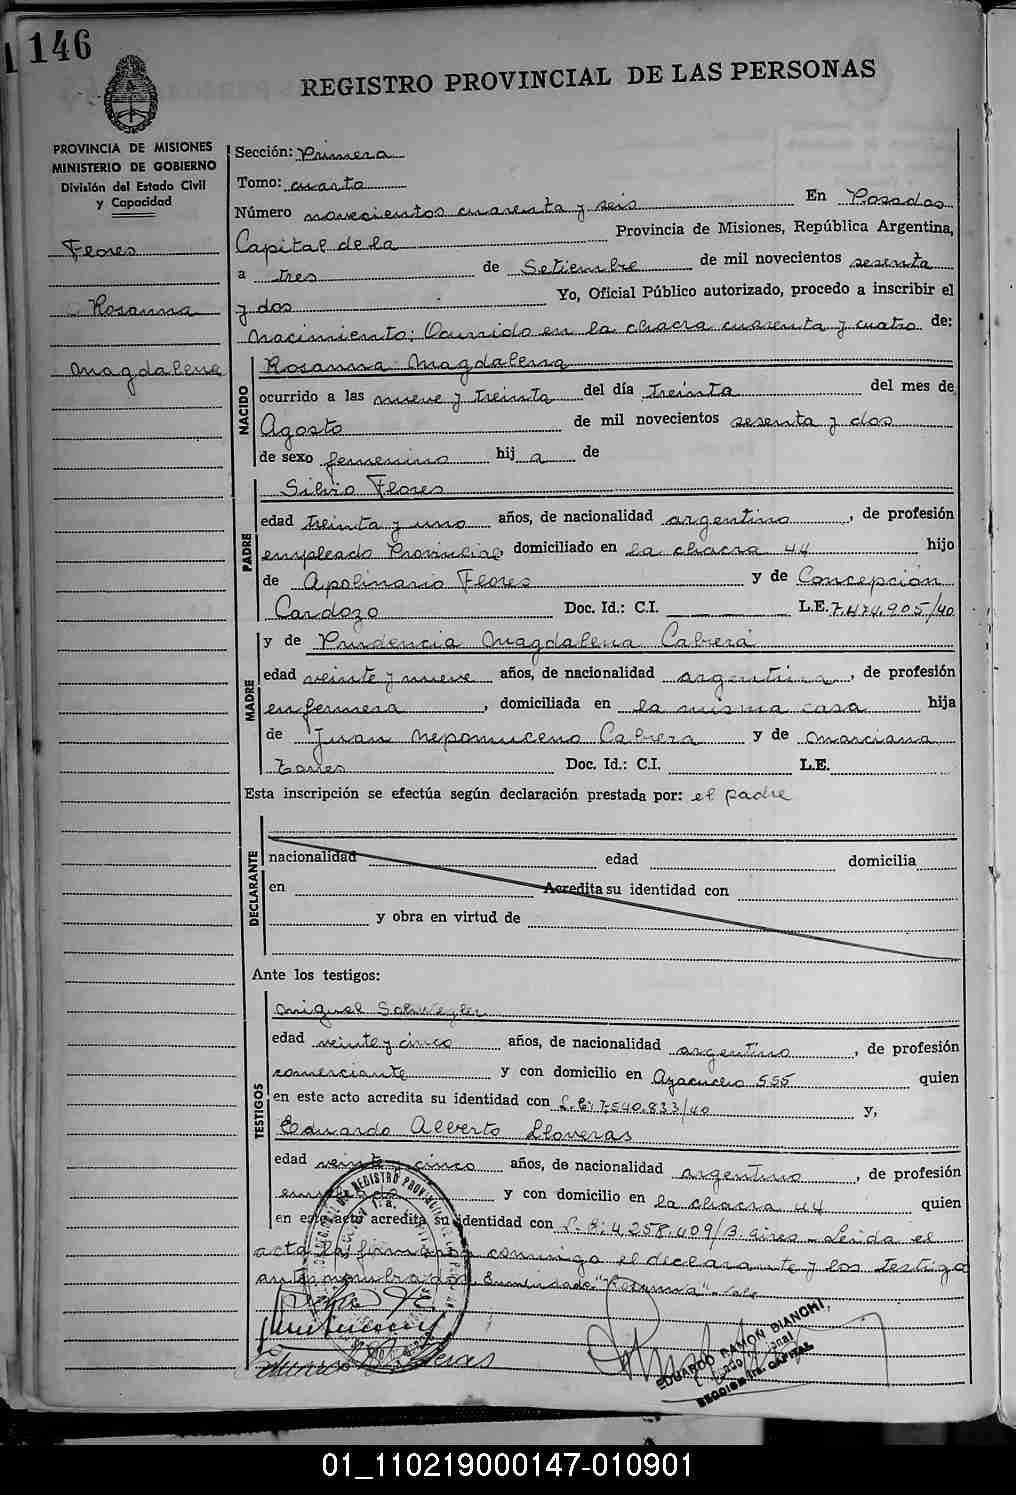 146
REGISTRO PROVINCIAL DE LAS PERSONAS
PROVINCIA DE MISIONES
MINISTERIO DE GOBIERNO
División del Estado Civil
y Capacidad
Flores
Rosanna
Magdalena
Sección: Primera
Tomo: cuarto
Número novecientos cuarenta y seis En Posadas
Capital de la Provincia de Misiones, República Argentina,
a tres de Setiembre de mil novecientos sesenta
y dos Yo, Oficial Público autorizado, procedo a inscribir el
Nacimiento: Ocurrido en la chacra cuarenta y cuatro de:
NACIDO
Rosanna Magdalena
ocurrido a las nueve y treinta del día treinta del mes de
Agosto de mil novecientos sesenta y dos
de sexo femenino hij a de
PADRE
Silvio Flores
edad treinta y uno años, de nacionalidad argentino, de profesión
empleado Provincial domiciliado en la chacra 44 hijo
de Apolinario Flores y de Concepción
Cardozo Doc. Id.: C.I. L.E. 7.474.905/40
MADRE
y de Prudencia Magdalena Cabrera
edad veinte y nueve años, de nacionalidad argentina, de profesión
enfermera, domiciliada en la misma casa hija
de Juan Nepomuceno Cabrera y de Marciana
Torres Doc. Id.: C.I. L.E.
Esta inscripción se efectúa según declaración prestada por: el padre
DECLARANTE
nacionalidad edad domicilia
en Acredita su identidad con
y obra en virtud de
Ante los testigos:
TESTIGOS
Miguel
edad veinte y cinco años, de nacionalidad argentino, de profesión
comerciante y con domicilio en Ayacucho 555 quien
en este acto acredita su identidad con L.E: 7.540.833/40 y,
Eduardo Alberto Lloveras
edad veinte y cinco años, de nacionalidad argentino, de profesión
empleado y con domicilio en la chacra 44 quien
en este acto acredita su identidad con L.E: 4.258.409/B. Aires - Leida el
acta la firmaron conmigo el declarante y los testigo
antes nombrados. Enmendado: "Rosanna" - Vale
EDUARDO RAMON BIANCHI
SECCION 1ra. CAPITAL
01_110219000147-010901